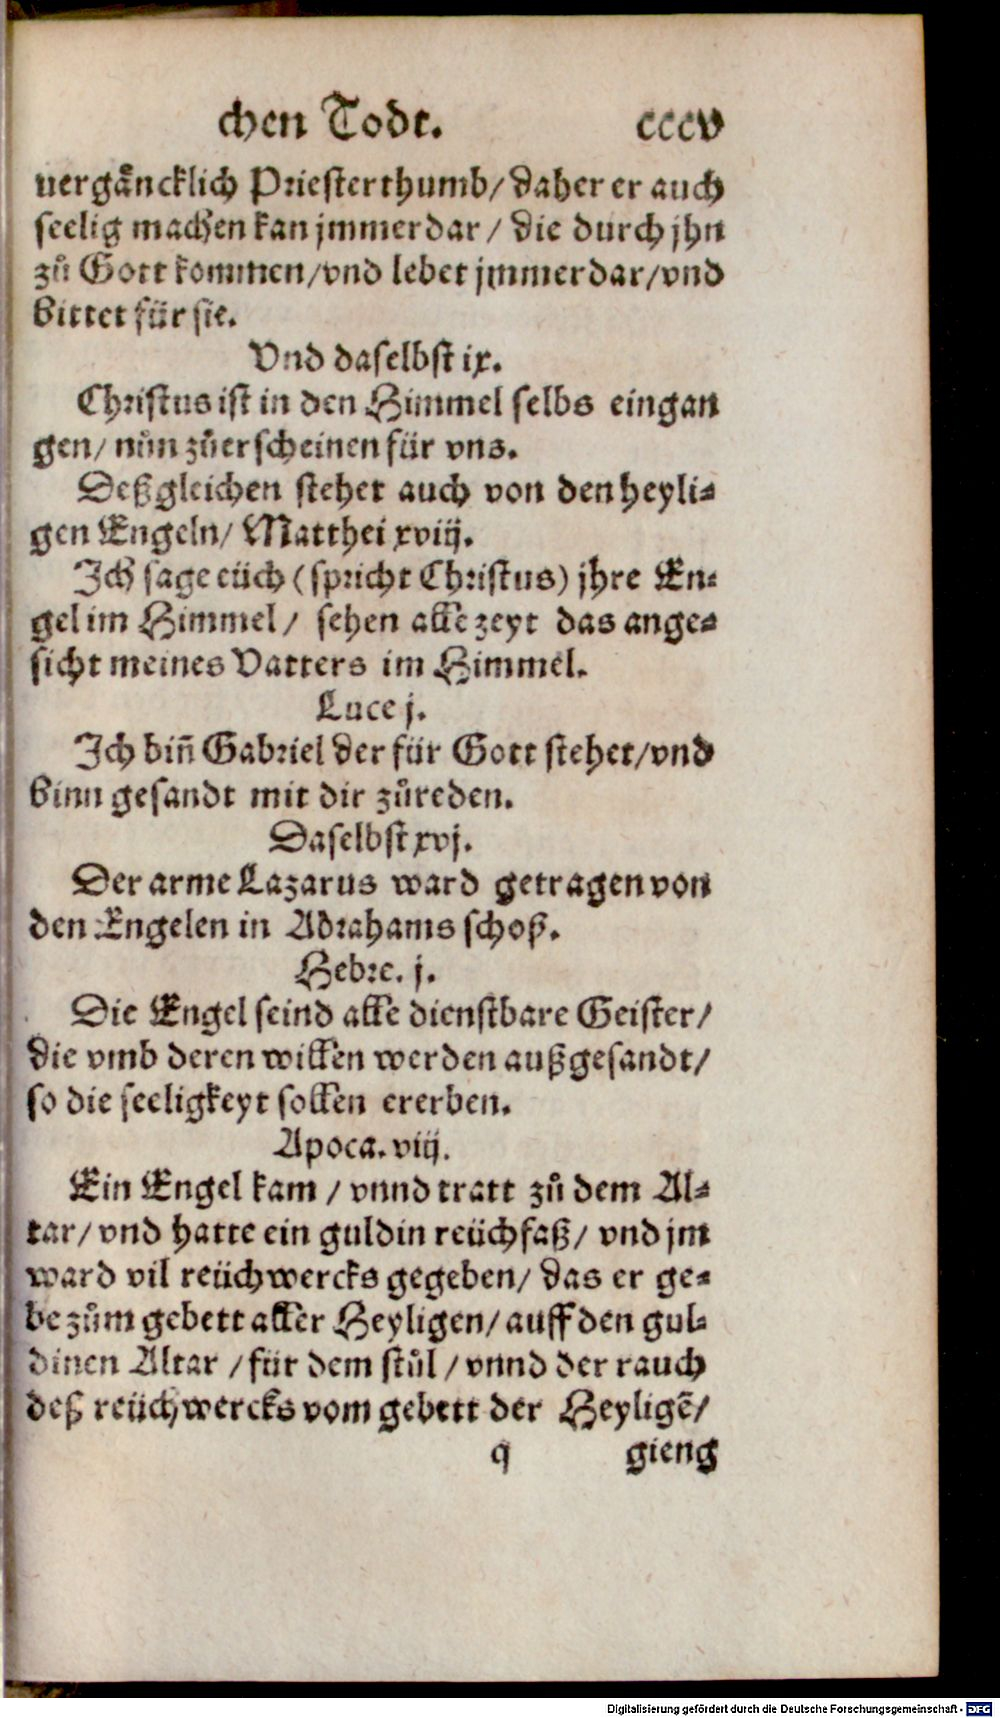 chen Todt. cccv
uergåncklich Priesterthumb/ daher er auch
seelig machen kan jmmerdar / die durch jhn
zů Gott kommen/vnd lebet jmmerdar/vnd
bittet für sie.
Vnd daselbst ix.
Christus ist in den Himmel selbs eingan
gen/ nůn zůerscheinen für vns.
Deßgleichen stehet auch von den heyli⸗
gen Engeln/ Matthei xviij.
Ich sage eüch (spricht Christus) jhre En⸗
gel im Himmel/ sehen alle zeyt das ange⸗
sicht meines Vatters im Himmel.
Luce j.
Ich bin̄ Gabriel der für Gott stehet/vnd
binn gesandt mit dir zůreden.
Daselbst xvj.
Der arme Lazarus ward getragen von
den Engelen in Abrahams schoß.
Hebre. j.
Die Engel seind alle dienstbare Geister/
die vmb deren willen werden außgesandt/
so die seeligkeyt sollen ererben.
Apoca. viij.
Ein Engel kam / vnnd tratt zů dem Al⸗
tar/ vnd hatte ein guldin reüchfaß/ vnd jm
ward vil reüchwercks gegeben/ das er ge⸗
be zům gebett aller Heyligen/ auff den gul⸗
dinen Altar / für dem stůl / vnnd der rauch
deß reüchwercks vom gebett der Heyligē/
q gieng
Digitalisierung gefördert durch die Deutsche Forschungsgemeinschaft - DFG